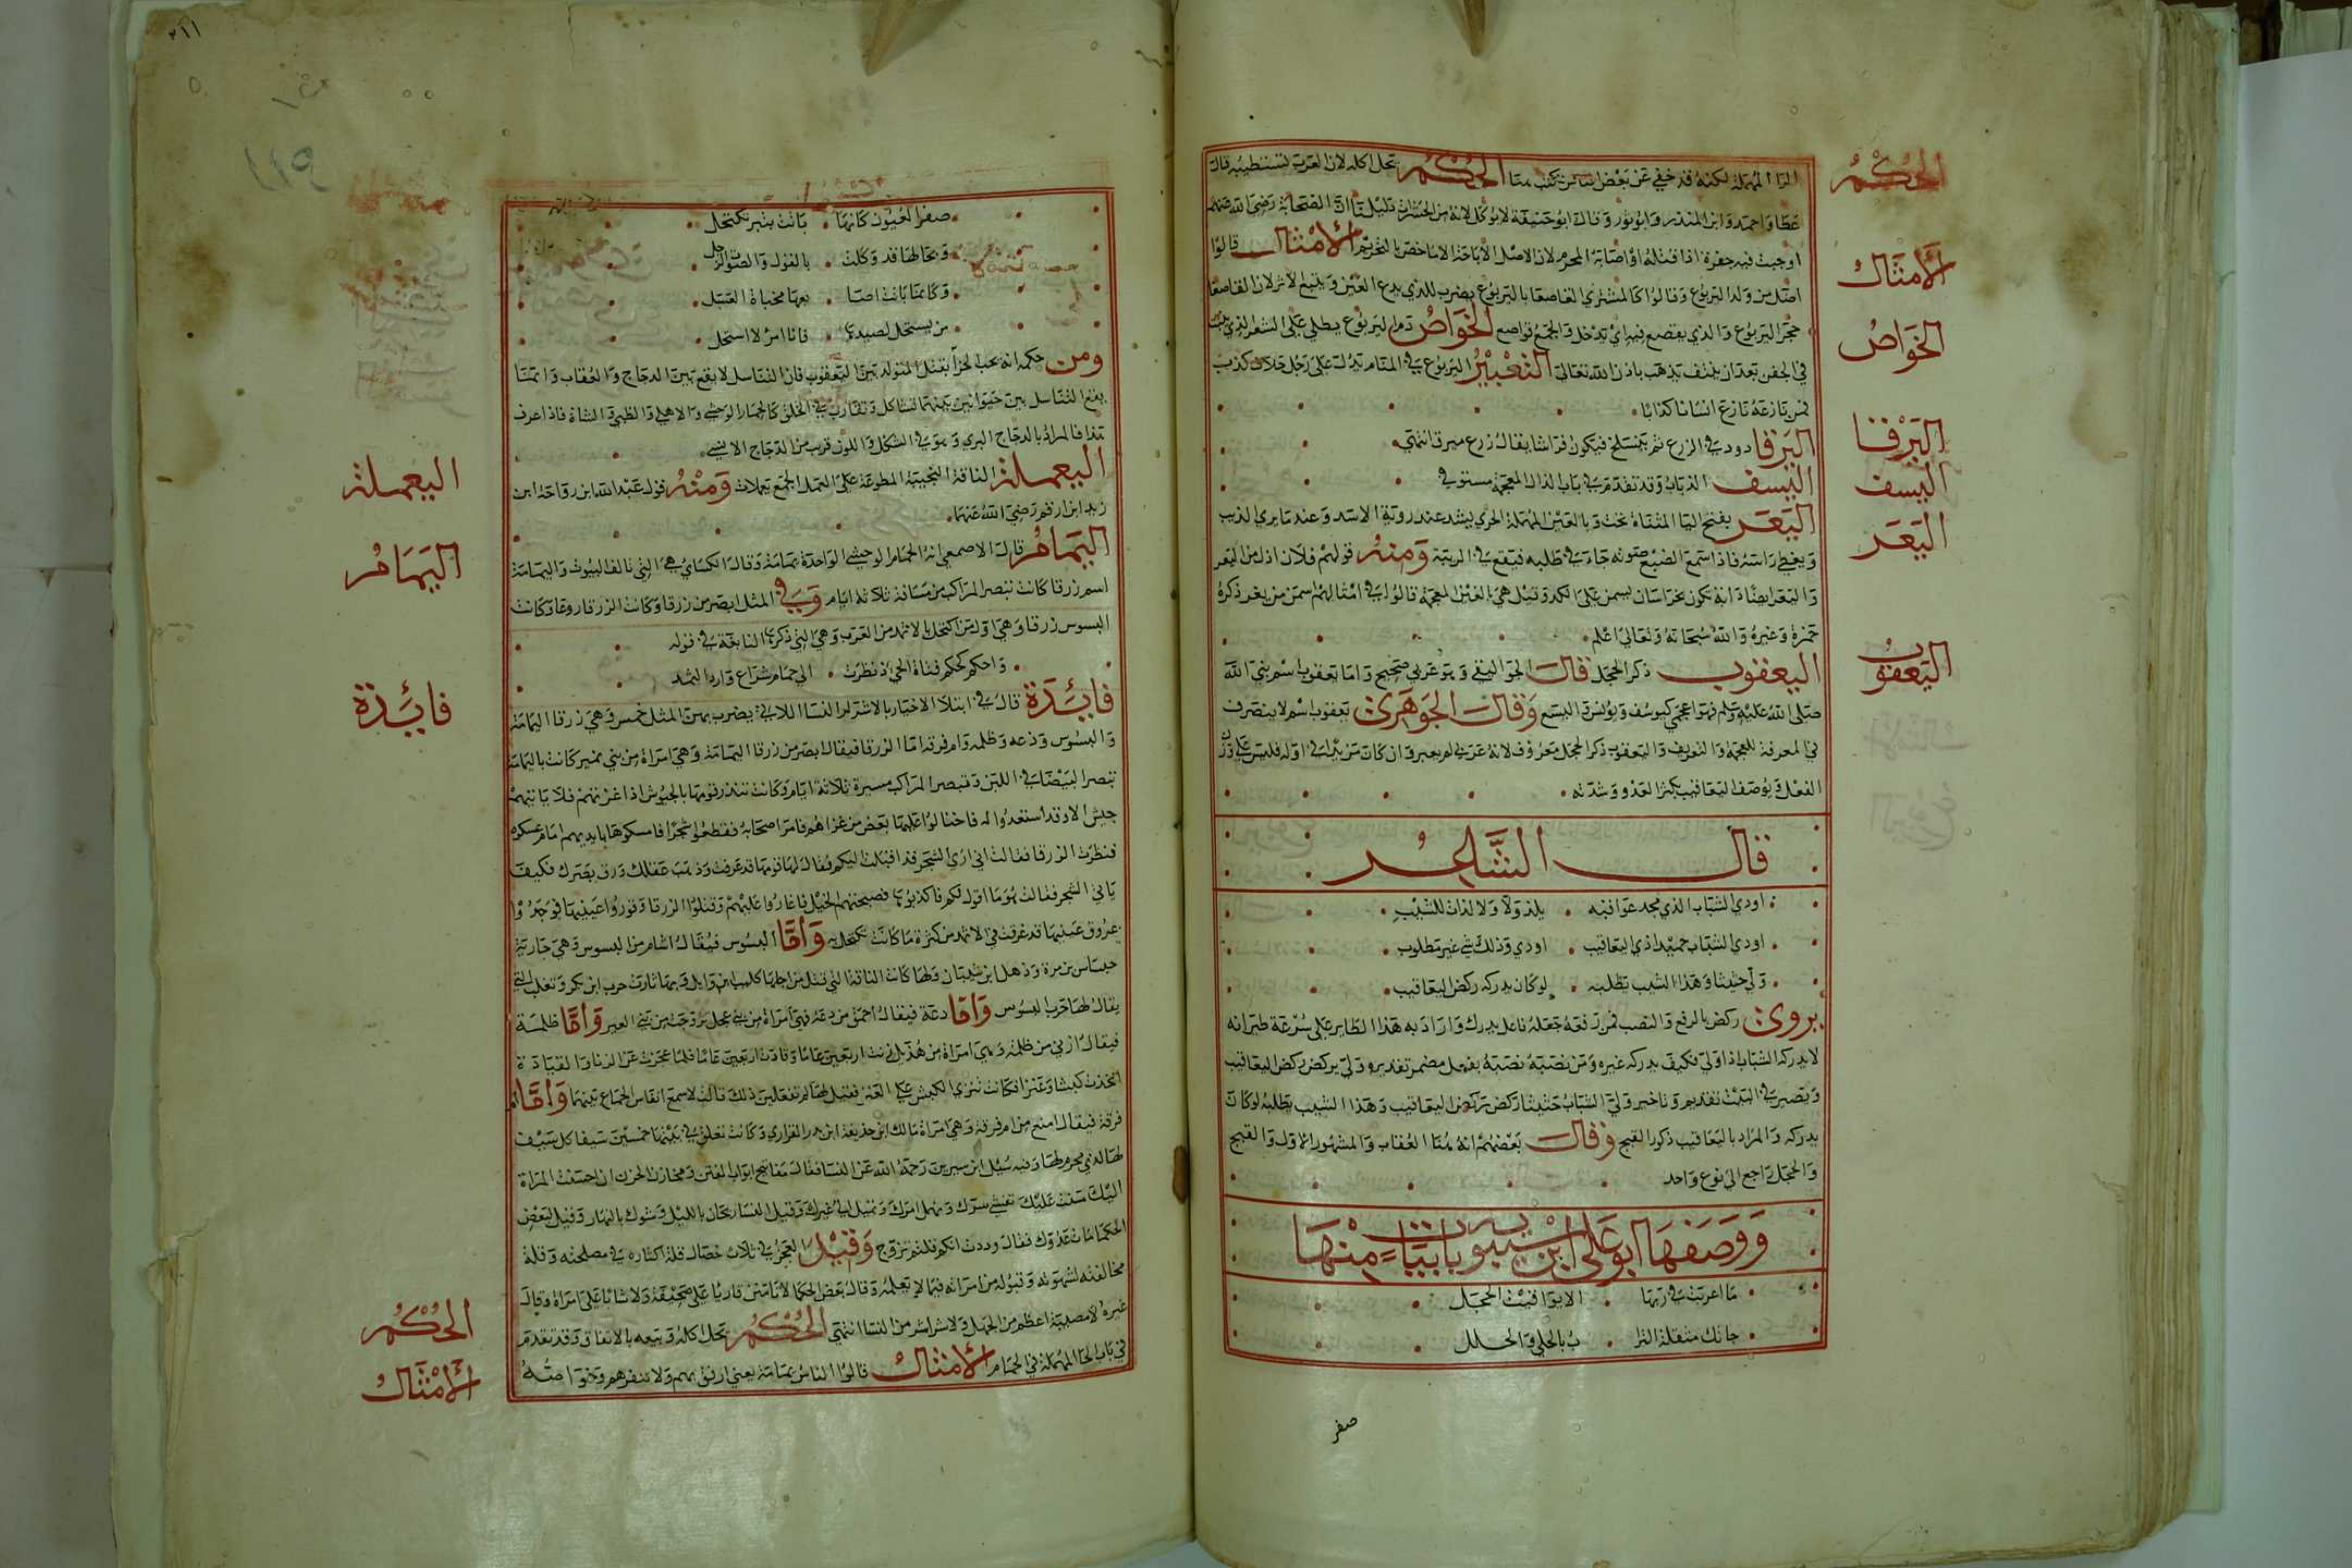 الحُكْمُ
الأَمْثَالُ
الخَوَاصُ
اليَرْقا
اليسف
اليَعَر
اليَعقوب
الرا المهملة لكنه قد خفي عن بعض الحُكْمُ يحل اكله لان العرب تستطيبه قال
عطا واحمد وابن المنذر وابو ثور وقال ابو حنيفة لا يوكل لانه من الحشرات دليلنا ان الصحابة رضي الله عنهم
اوجبت فيه جفرة اذا قتله او اصابه المحرم لان الاصل الاباحة الا ما خص بالتحريم الأَمْثَال قالوا
اضل من ولد اليربوع وقالوا كالمشتري القاصعا باليربوع يضرب للذي يدع العين ويتبع الاثر لان القاصعا
حجر اليربوع والذي يقصع فيه اي يدخل والجمع قواصع الخَوَاصُ دم اليربوع يطلى على الشعر الذي ينبت
في الجفن بعد ان ينتف يذهب باذن الله تعالى التَّعْبِيْرُ اليربوع في المنام يدل على رجل حلاف كذب
فمن نازعه نازع انسانا كذابا
اليَرْقا دود في الزرع ثم ينسلخ فيكون فراشا يقال زرع ميرقا انتهى
اليسف الذباب وقد تقدم في باب الذال المعجمة مستوفي
اليَعَر بفتح اليا المثناة تحت وبالعين المهملة الجدي يشد عند زوبة الاسد وعند ما يري الذيب
ويغطي راسه فاذا سمع الضبع صوته جاء في طلبه فيقع في الزبية وَمنهُ قولهم فلان اذل من اليعر
واليعر ايضا دابة تكون بخراسان يسمن على الكد وقيل هي بالغين المعجمة قالوا في امثالهم اسمن من يغر ذكره
حمزة وغيره والله سبحانه وتعالى اعلم
اليعقوب ذكر الحجل قالَ الجواليقي وهو عربي صحيح واما يعقوب اسم نبي الله
صلى الله عليه وسلم فهو اعجمي كيوسف ويونس واليسع وَقالَ الجَوهَري يعقوب اسم لا ينصرف
في المعرفة للعجمة والتعريف واليعقوب ذكر الحجل معروف لانه عربي لم يغير وان كان مزيدا في اوله فليس على وزن
الفعل ويوصف اليعاقيب بكثرة العدو وشدته
قال الشَّاعِر
اودي الشباب الذي مجد عواقبه يلذ ولا ولا لذات للشيب
اودي الشباب حميدا ذي التعاقيب اودي وذلك شي غير مطلوب
ولي حثيثا وهذا الشيب يطلبه لو كان يدركه ركض اليعاقيب
يروي ركض بالرفع والنصب فمن رفعه جعله فاعل يدرك واراد به هذا الطاير على سرعة طيرانه
لا يدرك الشباب اذا ولي فكيف يدركه غيره ومن نصبه نصبه بفعل مضمر تقديره ولي يركض ركض اليعاقيب
ويصير في البيت تقديم وتاخير ولي الشباب حثيثا يركض ركض اليعاقيب وهذا الشيب يطلبه لو كان
يدركه والمراد باليعاقيب ذكور القبج وقالَ بعضهم انه هنا العقاب والمشهور الاول والقبج
والحجل راجع الى نوع واحد
وَوَصَفهَا ابو عَلي ابن بابيات مِنْهَا
ما اعربت في زيها الا يواقيت الحجل
جاتك مثقلة الترا ب بالحلي والحلل
صفر
صفر العيون كانها باتت بتبر تكتحل
وتخالها قد وكلت بالقول والصوت
وكانما باتت اصا بعها مخباة العسل
من يستحل لصيدها فانا امرؤ لا استحل
ومن حكمه انه يجب الجزا بقتل المتولد بين اليعقوب فان التناسل لا يقع بين الدجاج والعقاب وانما
يقع التناسل بين حيوانين بينهما تشاكل وتقارب في الخلق كالحمار الوحشي والاهلي والظبي والشاة فاذا عرف
هذا فالمراد بالدجاج البري وهو في الشكل واللون قريب من الدجاج الانسي
اليعملة الناقة النجيبة المطوعة على العمل الجمع يعملات وَمنْهُ قول عبد الله ابن رواحة ابن
زيد ابن ارقم رضي الله عنهما
اليَمَامُ قال الاصمعي انه الحمام الوحشي الواحدة يمامة وقال الكسائي هي التي تالف البيوت واليمامة
اسم زرقا كانت تبصر المراكب من مسافة ثلاثة ايام وَفي المثل ابصر من زرقا وكانت الزرقا وكانت
البسوس زرقا وهي اول من اكتحل بالاثمد من العرب وهي التي ذكرها النابغة في قوله
واحكم كحكم فتاة الحي اذ نظرت الى حمام شراع وارد الثمد
فايدَة قال في ابتلا الاخيار بالاشرار النسا اللاتي يضرب بهن المثل خمس وهي زرقا اليمامة
والبسوس ودعه وظلمه وام قرفه اما الزرقا فيقال ابصر من زرقا اليمامة وهي امراة من بني نمير كانت باليمامة
تبصر البيضا في اللبن وتبصر المراكب مسيرة ثلاثة ايام وكانت تنذر قومها بالجيوش اذا غزتهم فلا ياتيهم
جيش الا وقد استعدوا له فاحتالوا عليها بعض من غزاهم فامر اصحابه فقطعوا شجرا فامسكوها بايديهم امام عسكره
فنظرت الزرقا فقالت اني اري الشجر قد اقبلت اليكم فقال لها قومها قد خرفت وذهب عقلك ورق بصرك فكيف
ياتي الشجر فقالت هو ما اقول لكم فاكذبوها فصبحتهم الخيل فاغاروا عليهم وقتلوا الزرقا وقوروا عينيها فوجدوا
عروق عينيها قد غرقت في الاثمد من كثرة ما كانت تكتحل به وَأمَّا البسوس فيقال اشام من البسوس وهي جارية
جساس بن مرة وذهل ابن شيبان ولها كانت الناقة التي قتل من اجلها كليب ابن وايل وبها ثارت حرب ابن بكر وتغلب التي
يقال لها حرب البسوس وَأمَّا دعة فيقال احمق من دعه فهي امراة من بني عجل تزوجت من بني العبير وَأمَّا ظلمة
فيقال ازني من ظلمه وهي امراة من هذيل زنت اربعين عاما وقادت اربعين عاما فلما عجزت عن الزنا والقيادة
اتخذت كبشا وعنزا فكانت تنزي الكبش على العنز فقيل لها لم تفعلين ذلك قالت لاسمع انفاس الجماع بينهما وَأمَّا ام
قرفة فيقال امنع من ام قرفة وهي امراة مالك ابن حذيفة ابن بدر الفزاري وكانت تعلق في بيتها خمسين سيفا كل سيف
لها لذي محرم لها وفيه سيل ابن سيرين رحمه الله عن النسا فقال مفاتيح ابواب الفتن ومخازن الحزن ان احسنت المراة
اليك منت عليك تفشي سرك وتهمل امرك وتميل الي غيرك وقيل النسا ريحان بالليل وشوك بالنهار وقيل لبعض
الحكما مات عدوك فقال وددت انكم قلتم تزوج وَقيْلَ العجز في ثلاث خصال قلة اكتراثه في مصلحته وقلة
مخالفته لشهوته وقبوله من امراته فيما لا يعلمه وقال بعض الحكما لا تامنن قاريا على صحيفة ولا شابا على امراة وقال
غيره لا مصيبة اعظم من الجهل ولا شر اشر من النسا انتهى الحُكْمُ يحل اكله وبيعه بالاتفاق وقد تقدم
في باب الحا المهملة في الحمام الأَمْثَالُ قالوا الناس يمامة يعني ارفق بهم ولا تنفرهم وخواصُّهُ
اليعملة
اليَمَامُ
فايدَة
الحُكْمُ
الأَمْثَالُ
٢١١